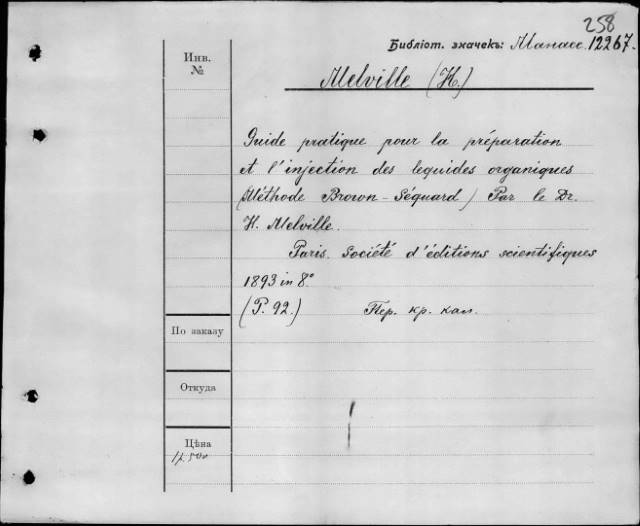 258
Библіот. значекъ: Манасс. 12267.
Инв.
№
Melville (H.)
Guide pratique pour la préparation
et l'injection des leguides organiques
(Méthode Brown-Séquard) Par le Dr.
H. Melville.
Paris. Société d'éditions scientifiques
1893 in 8°
(P. 92.)
Пер. кр. кал.
По заказу
Откуда
Цѣна